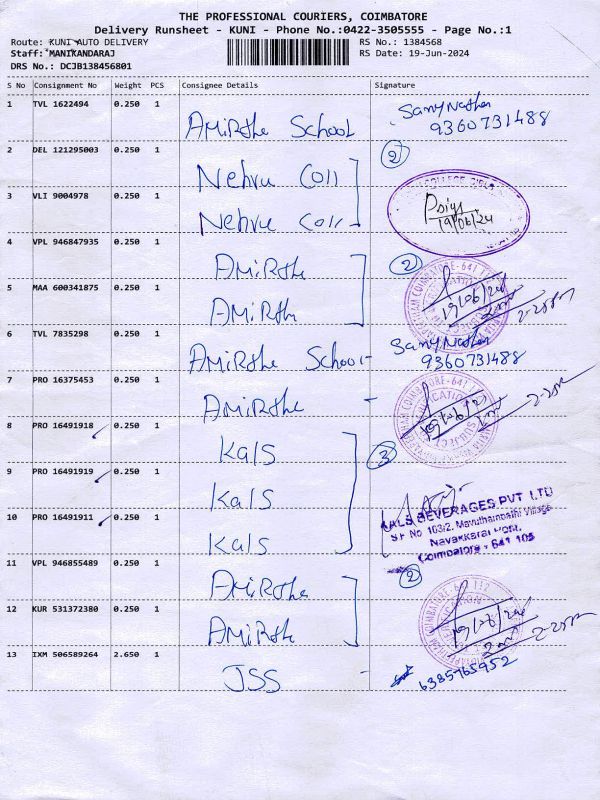 THE PROFESSIONAL COURIERS, COIMBATORE
Delivery Runsheet - KUNI - Phone No.:0422-3505555 - Page No.:1
Route: KUNI AUTO DELIVERY RS No.: 1384568
Staff: MANIKANDARAJ RS Date: 19-Jun-2024
DRS No.: DCJB138456801
S No Consignment No Weight PCS Consignee Details Signature
1 TVL 1622494 0.250 1 AMiRthe School SamyNathan
9360731488
2 DEL 121295003 0.250 1 Nehru Coll 2
3 VLI 9004978 0.250 1 Nehru Coll COLLEGE
19/06/24
4 VPL 946847935 0.250 1 AMiRthe 2
COIMBATORE-641
5 MAA 600341875 0.250 1 AMiRth 19/06/24
6 TVL 7835298 0.250 1 AMiRthe School - SamyNathan
9360731488
7 PRO 16375453 0.250 1 AMiRthe -
COIMBATORE-641
8 PRO 16491918 0.250 1 Kals 3
9 PRO 16491919 0.250 1 Kals
10 PRO 16491911 0.250 1 Kals
KALS BEVERAGES PVT LTD
S.F No 103/2, Mavuthampathi Village
Navakkarai Post,
Coimbatore - 641 105
11 VPL 946855489 0.250 1 AMiRthe 2
12 KUR 531372380 0.250 1 AMiRthe 19/06/24
13 IXM 506589264 2.650 1 JSS -
6385765952